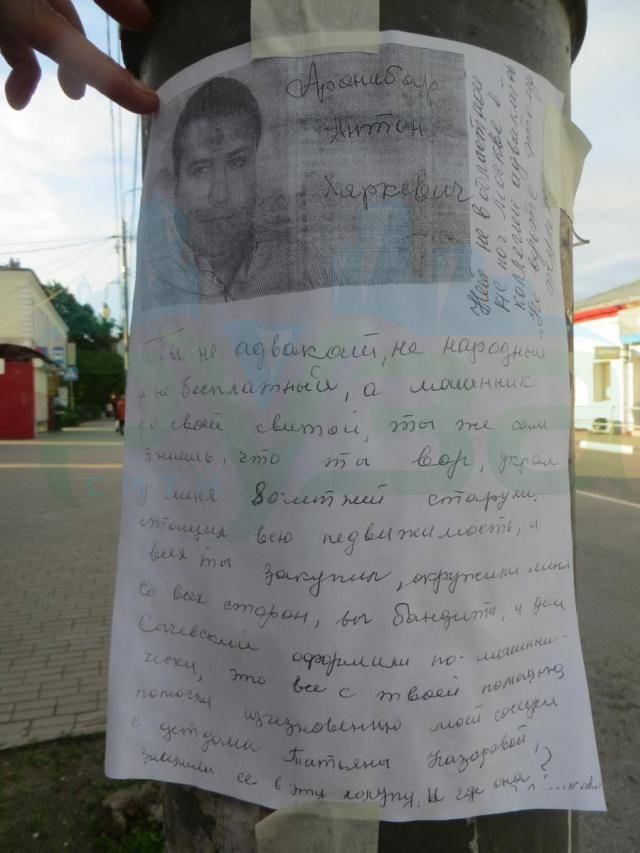 Аранибар
Антон
Хяркевич
Нет не в областной
не мог Москве в
коллегии адвакатов
Не верьте этому
Ты не адвакат, не народный
и не бесплатный, а машенник
со своей свитой, ты же сам
знаешь, что ты вор, украл
у меня 80 летней старухи,
стащил всю недвижимость, и
всех ты закупил, окружили меня
со всех сторон, вы бандиты, и дом
Сычевский оформили по-машенни-
чески, это все с твоей помощью,
помогли изчезновению моей соседки
с детдома Татьяны Назаровой,
заселили ее в эту халупу, И где она?